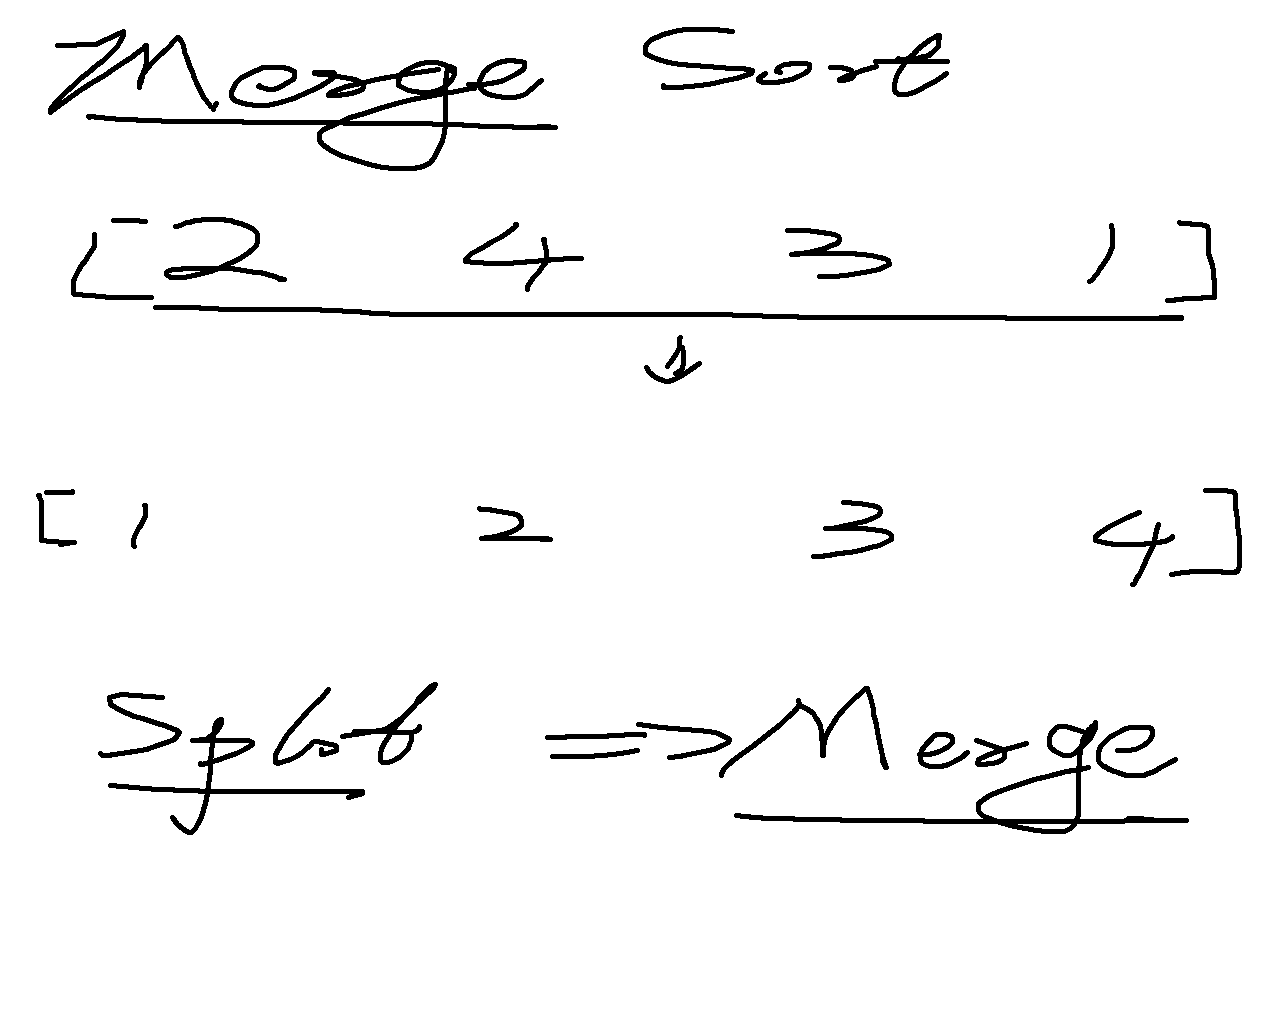 Merge Sort
[2 4 3 1]
↓
[1 2 3 4]
Split => Merge